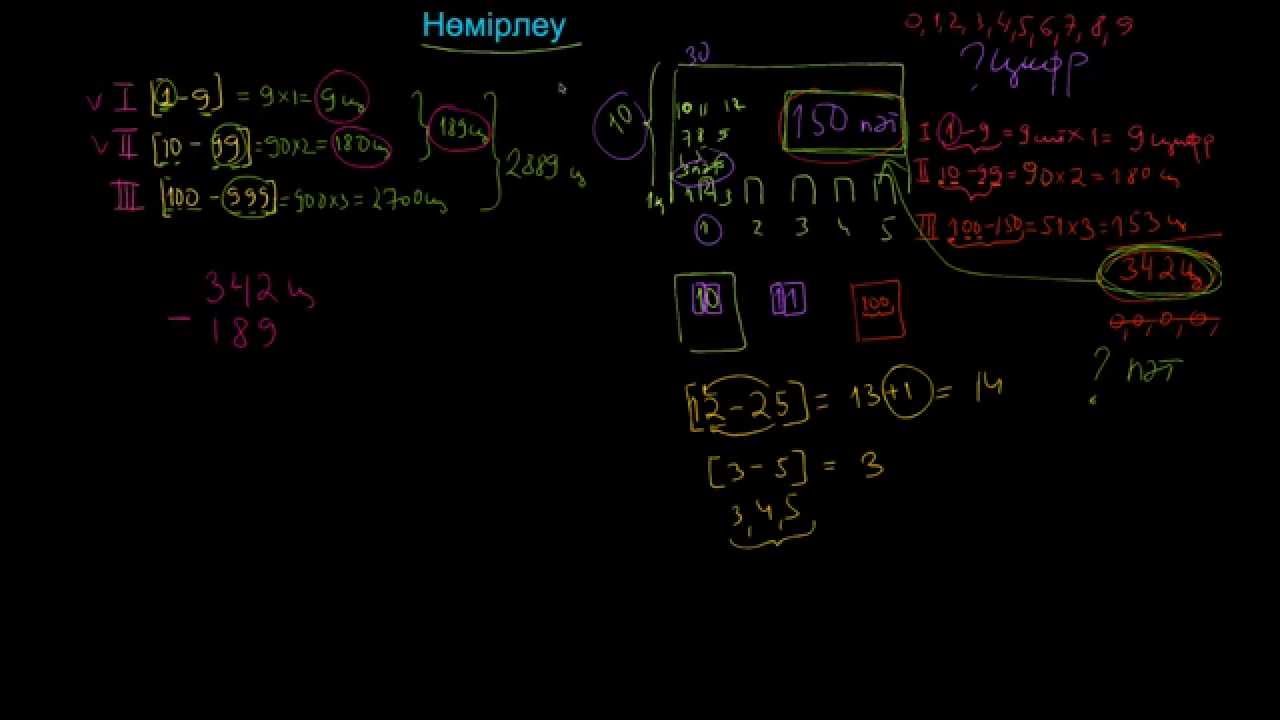 Нөмірлеу
0, 1, 2, 3, 4, 5, 6, 7, 8, 9
? цифр
v I [1 - 9] = 9×1 = 9ц
v II [10 - 99] = 90×2 = 180ц
189ц
III [100 - 999] = 900×3 = 2700ц
2889 ц
30
10
10 11 12
7 8 9
1 2 3
150 пәт
1 2 3 4 5
I 1 - 9 = 9 × 1 = 9 цифр
II 10 - 99 = 90 × 2 = 180 ц
III 100 - 150 = 51 × 3 = 153 ц
342ц
0, 0, 0, 0,
? пәт
342 ц
- 189
10 11 100
[12 - 25] = 13 + 1 = 14
[3 - 5] = 3
3, 4, 5